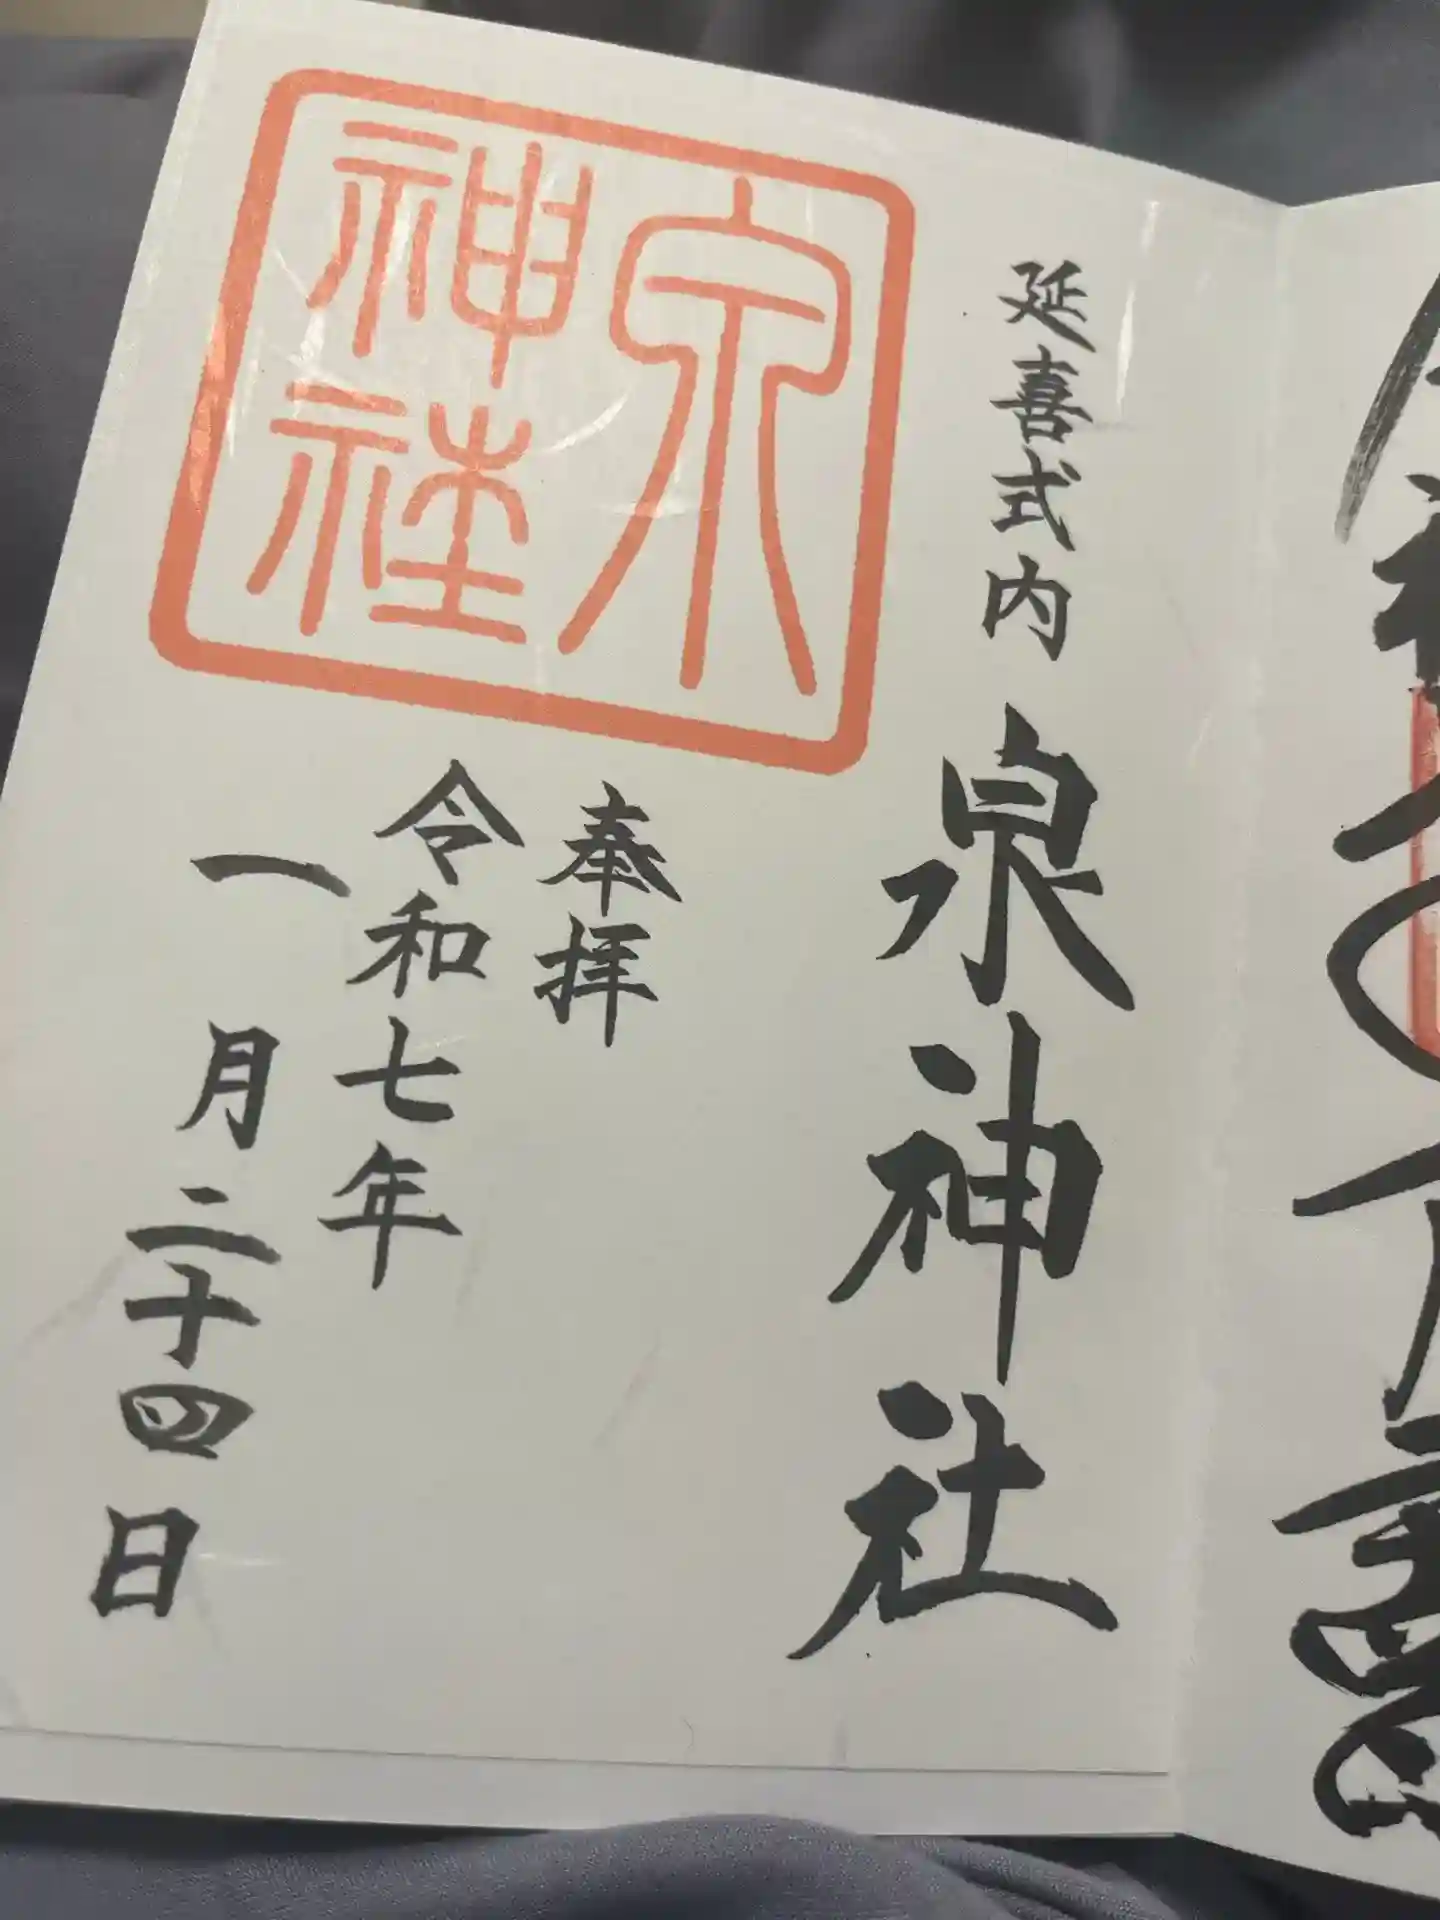 延喜式内
泉神社
泉神社
奉拝
令和七年
一月二十四日